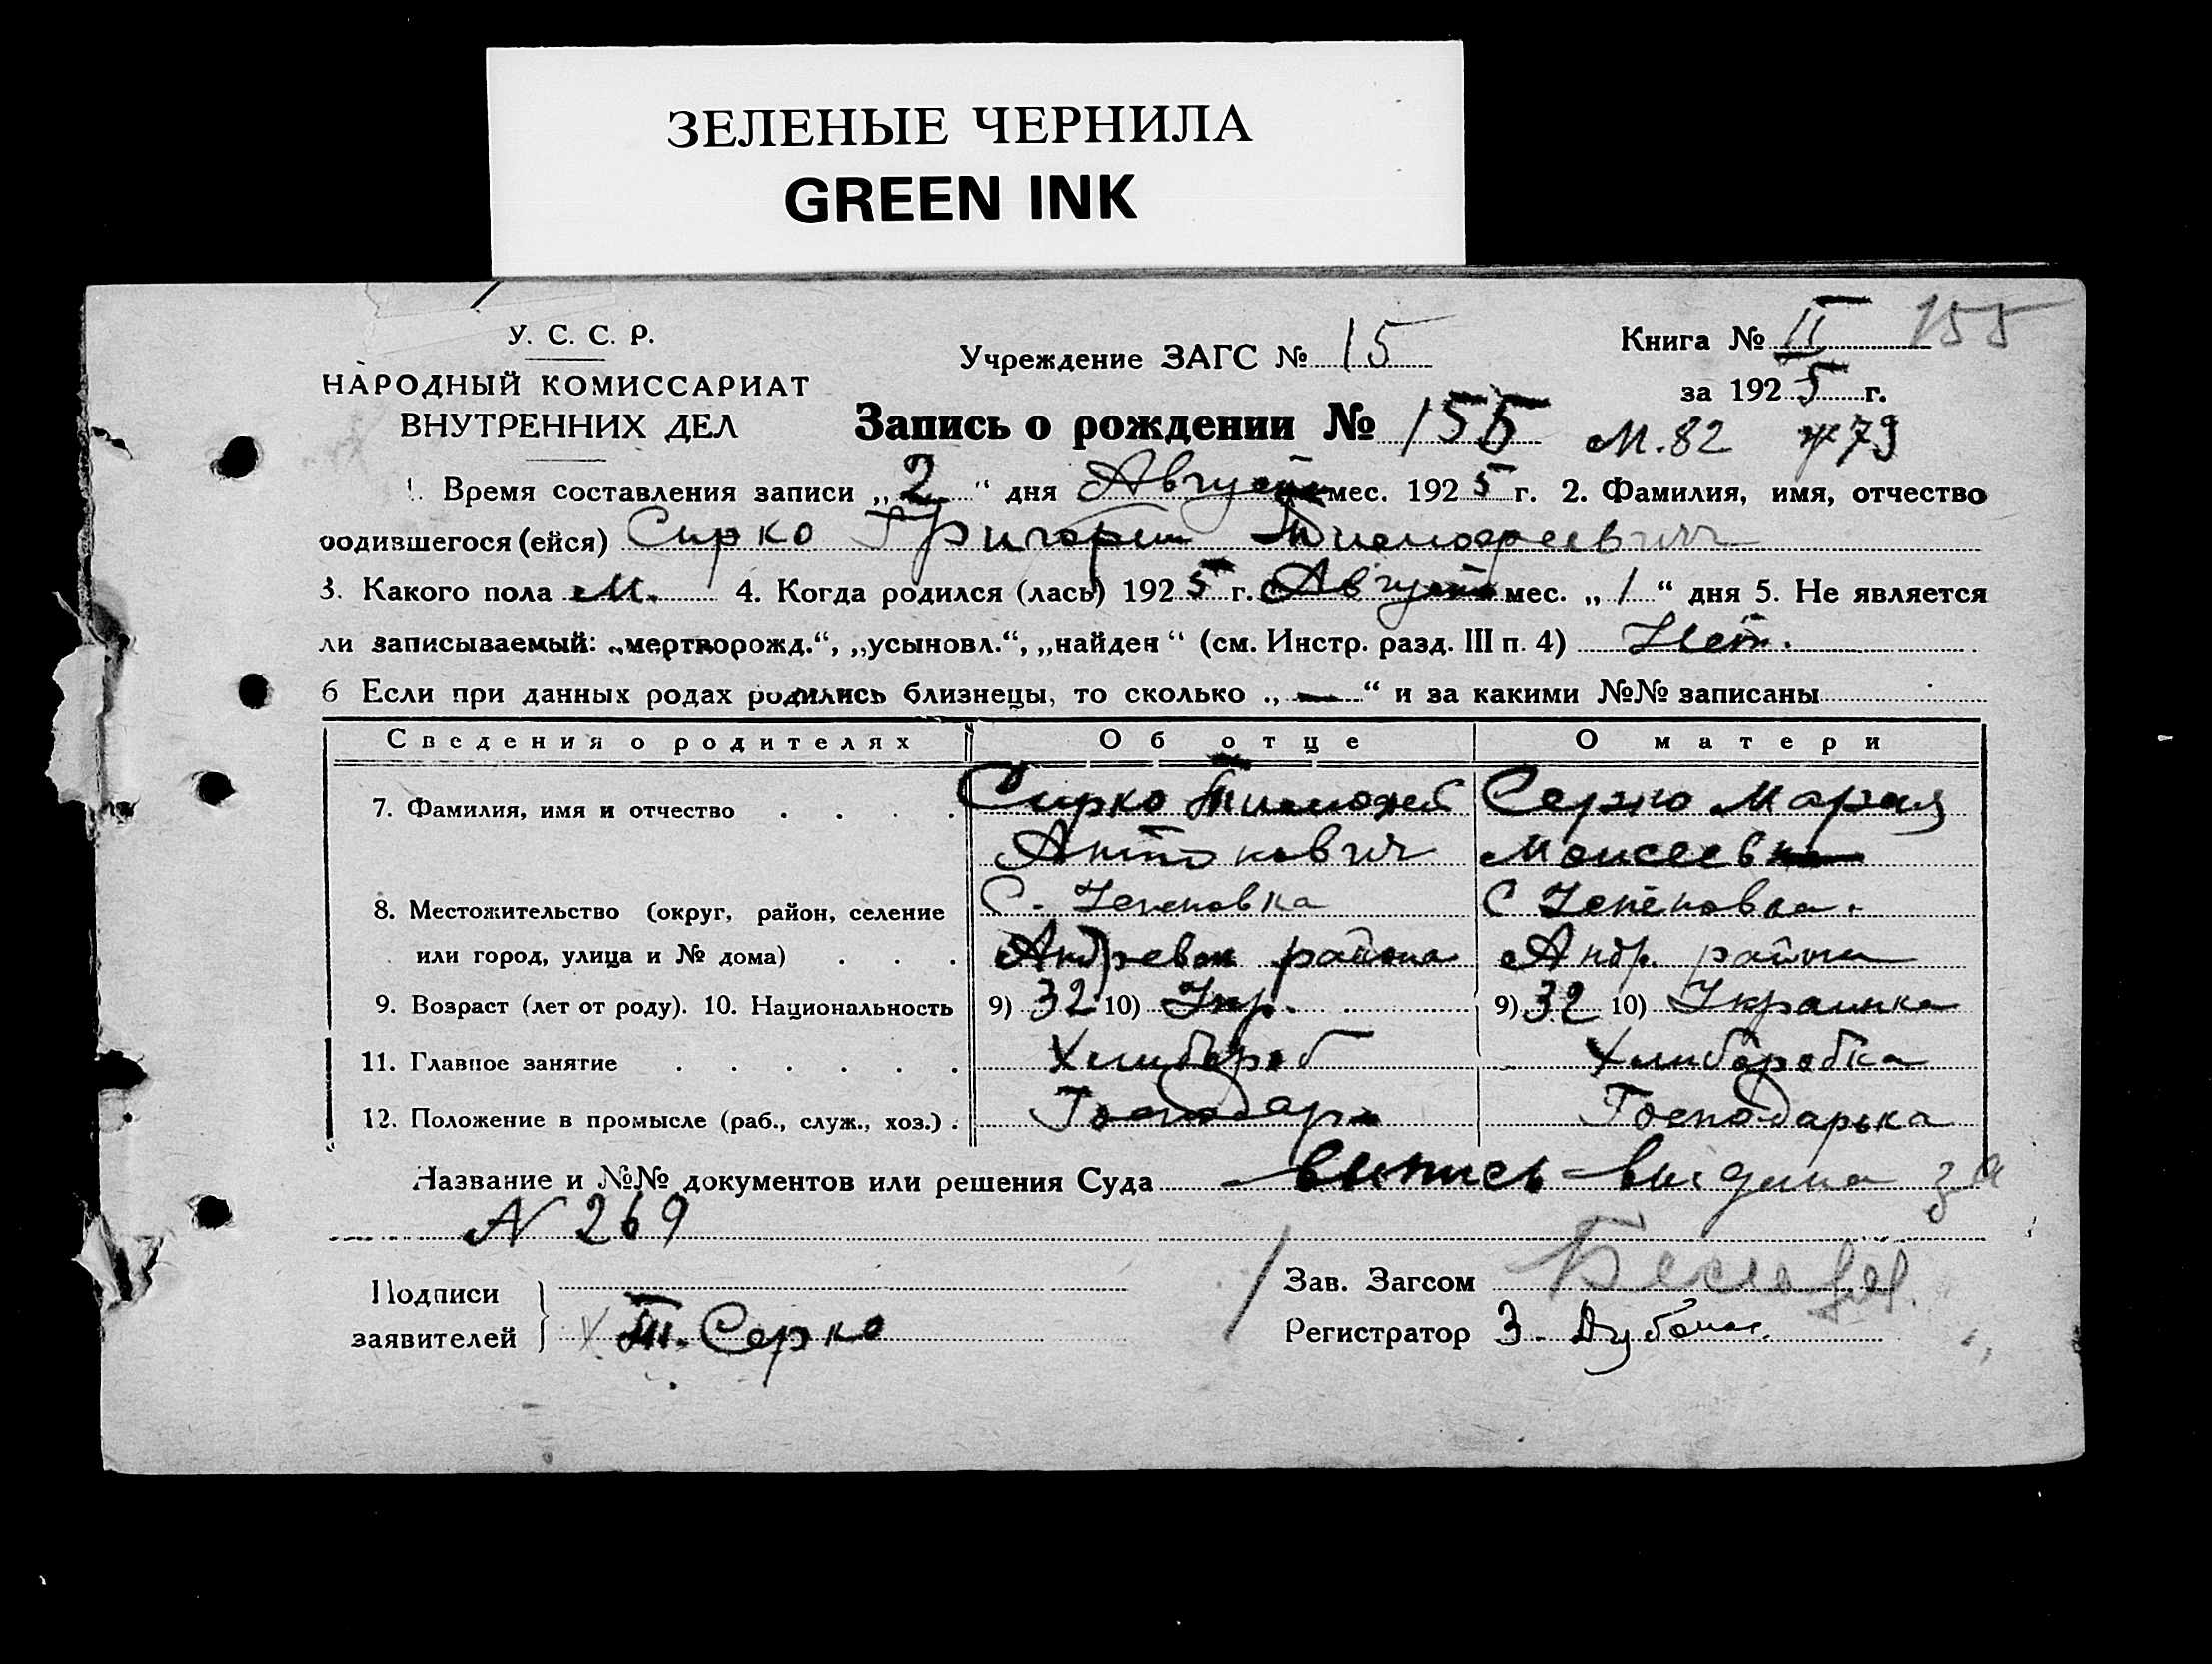 ЗЕЛЕНЫЕ ЧЕРНИЛА
GREEN INK
У. С. С. Р.
НАРОДНЫЙ КОМИССАРИАТ
ВНУТРЕННИХ ДЕЛ
Учреждение ЗАГС № 15
Книга № II 155
за 1925 г.
Запись о рождении № 155 М.82 ж79
1. Время составления записи „2“ дня Август мес. 1925 г. 2. Фамилия, имя, отчество
родившегося (ейся) Сирко Григорий Тимофеевич
3. Какого пола М. 4. Когда родился (лась) 1925 г. Август мес. „1“ дня 5. Не является
ли записываемый: „мертворожд.“, „усыновл.“, „найден“ (см. Инстр. разд. III п. 4) Нет.
6 Если при данных родах родились близнецы, то сколько „—“ и за какими №№ записаны
Сведения о родителях Об отце О матери
7. Фамилия, имя и отчество Сирко Тимофей Серко Мария
Антонович Моисеевна
8. Местожительство (округ, район, селение С. С
или город, улица и № дома) района Андр. района
9. Возраст (лет от роду). 10. Национальность 9) 32 10) Укр. 9) 32 10) Украинка
11. Главное занятие Хлибороб Хлиборобка
12. Положение в промысле (раб., служ., хоз.) Господарь Господарька
Название и №№ документов или решения Суда выпись выдана за
N 269
Подписи
заявителей } Т. Серко
Зав. Загсом
Регистратор З.